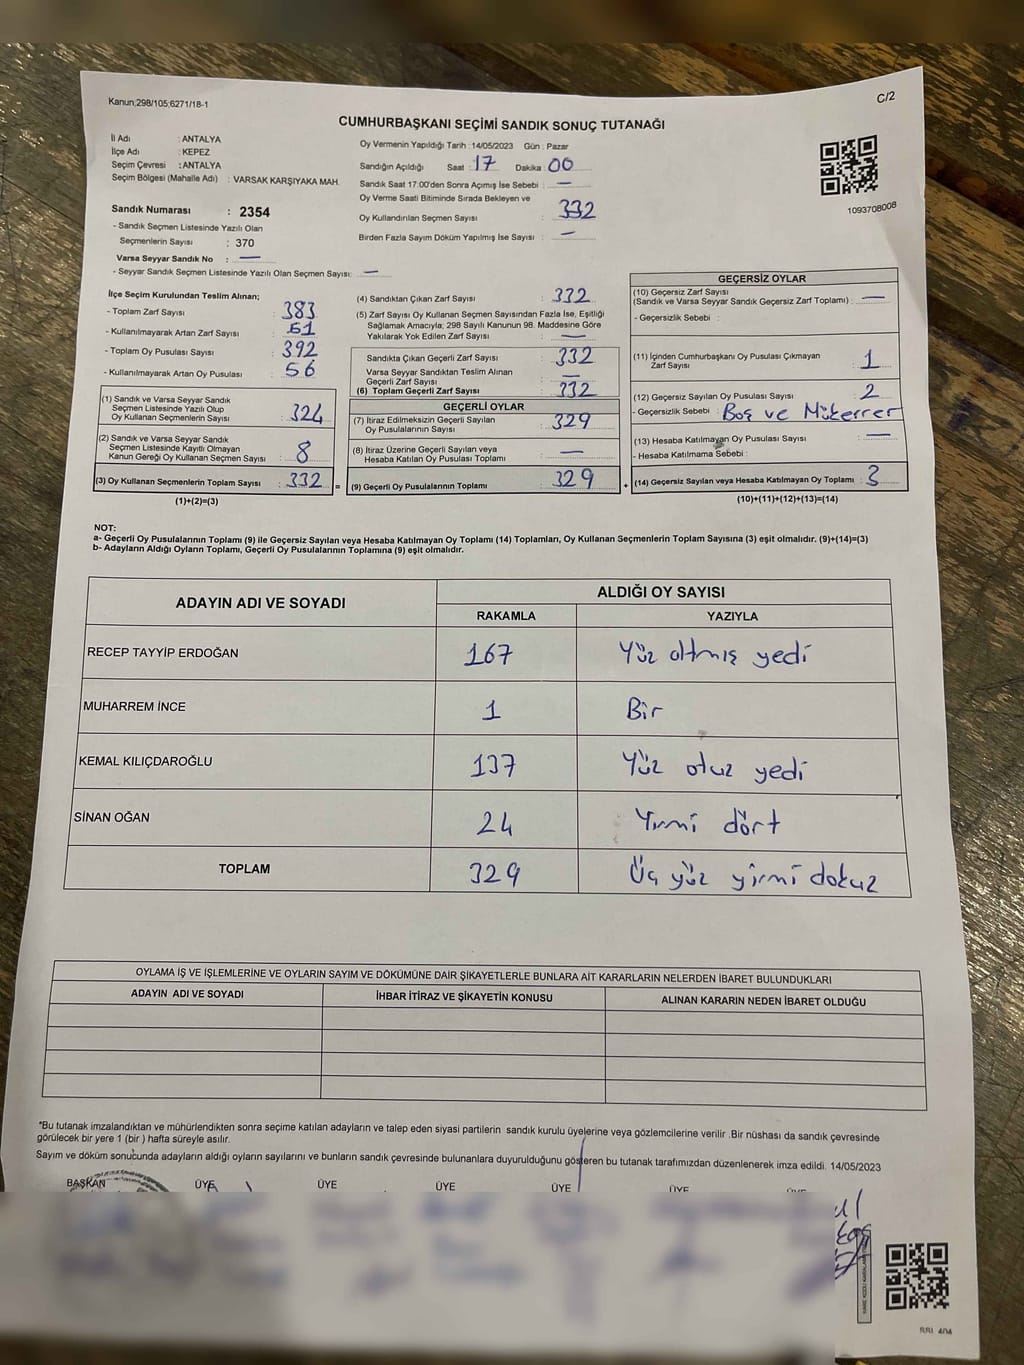 Kanun;298/105;6271/18-1
C/2
CUMHURBAŞKANI SEÇİMİ SANDIK SONUÇ TUTANAĞI
İl Adı : ANTALYA
İlçe Adı : KEPEZ
Seçim Çevresi : ANTALYA
Seçim Bölgesi (Mahalle Adı) : VARSAK KARŞIYAKA MAH.
Sandık Numarası : 2354
- Sandık Seçmen Listesinde Yazılı Olan
Seçmenlerin Sayısı : 370
Varsa Seyyar Sandık No : —
- Seyyar Sandık Seçmen Listesinde Yazılı Olan Seçmen Sayısı: —
Oy Vermenin Yapıldığı Tarih : 14/05/2023 Gün : Pazar
Sandığın Açıldığı Saat : 17 Dakika : 00
Sandık Saat 17:00'den Sonra Açımış İse Sebebi : —
Oy Verme Saati Bitiminde Sırada Bekleyen ve
Oy Kullandırılan Seçmen Sayısı : 332
Birden Fazla Sayım Döküm Yapılmış İse Sayısı : —
1093708008
İlçe Seçim Kurulundan Teslim Alınan;
- Toplam Zarf Sayısı : 383
- Kullanılmayarak Artan Zarf Sayısı : 51
- Toplam Oy Pusulası Sayısı : 392
- Kullanılmayarak Artan Oy Pusulası : 56
(1) Sandık ve Varsa Seyyar Sandık
Seçmen Listesinde Yazılı Olup
Oy Kullanan Seçmenlerin Sayısı : 324
(2) Sandık ve Varsa Seyyar Sandık
Seçmen Listesinde Kayıtlı Olmayan
Kanun Gereği Oy Kullanan Seçmen Sayısı : 8
(3) Oy Kullanan Seçmenlerin Toplam Sayısı : 332 =
(1)+(2)=(3)
(4) Sandıktan Çıkan Zarf Sayısı : 332
(5) Zarf Sayısı Oy Kullanan Seçmen Sayısından Fazla İse, Eşitliği
Sağlamak Amacıyla; 298 Sayılı Kanunun 98. Maddesine Göre
Yakılarak Yok Edilen Zarf Sayısı : —
Sandıkta Çıkan Geçerli Zarf Sayısı : 332
Varsa Seyyar Sandıktan Teslim Alınan
Geçerli Zarf Sayısı : —
(6) Toplam Geçerli Zarf Sayısı : 332
GEÇERLİ OYLAR
(7) İtiraz Edilmeksizin Geçerli Sayılan
Oy Pusulalarının Sayısı : 329
(8) İtiraz Üzerine Geçerli Sayılan veya
Hesaba Katılan Oy Pusulası Toplamı : —
(9) Geçerli Oy Pusulalarının Toplamı : 329 +
GEÇERSİZ OYLAR
(10) Geçersiz Zarf Sayısı
(Sandık ve Varsa Seyyar Sandık Geçersiz Zarf Toplamı) : —
- Geçersizlik Sebebi :
(11) İçinden Cumhurbaşkanı Oy Pusulası Çıkmayan
Zarf Sayısı : 1
(12) Geçersiz Sayılan Oy Pusulası Sayısı : 2
- Geçersizlik Sebebi : Boş ve Mükerrer
(13) Hesaba Katılmayan Oy Pusulası Sayısı : —
- Hesaba Katılmama Sebebi :
(14) Geçersiz Sayılan veya Hesaba Katılmayan Oy Toplamı : 3
(10)+(11)+(12)+(13)=(14)
NOT:
a- Geçerli Oy Pusulalarının Toplamı (9) ile Geçersiz Sayılan veya Hesaba Katılmayan Oy Toplamı (14) Toplamları, Oy Kullanan Seçmenlerin Toplam Sayısına (3) eşit olmalıdır. (9)+(14)=(3)
b- Adayların Aldığı Oyların Toplamı, Geçerli Oy Pusulalarının Toplamına (9) eşit olmalıdır.
ADAYIN ADI VE SOYADI
ALDIĞI OY SAYISI
RAKAMLA YAZIYLA
RECEP TAYYİP ERDOĞAN 167 Yüz altmış yedi
MUHARREM İNCE 1 Bir
KEMAL KILIÇDAROĞLU 137 Yüz otuz yedi
SİNAN OĞAN 24 Yirmi dört
TOPLAM 329 Üç yüz yirmi dokuz
OYLAMA İŞ VE İŞLEMLERİNE VE OYLARIN SAYIM VE DÖKÜMÜNE DAİR ŞİKAYETLERLE BUNLARA AİT KARARLARIN NELERDEN İBARET BULUNDUKLARI
ADAYIN ADI VE SOYADI İHBAR İTİRAZ VE ŞİKAYETİN KONUSU ALINAN KARARIN NEDEN İBARET OLDUĞU
*Bu tutanak imzalandıktan ve mühürlendikten sonra seçime katılan adayların ve talep eden siyasi partilerin sandık kurulu üyelerine veya gözlemcilerine verilir .Bir nüshası da sandık çevresinde
görülecek bir yere 1 (bir ) hafta süreyle asılır.
Sayım ve döküm sonucunda adayların aldığı oyların sayılarını ve bunların sandık çevresinde bulunanlara duyurulduğunu gösteren bu tutanak tarafımızdan düzenlenerek imza edildi. 14/05/2023
BAŞKAN ÜYE ÜYE ÜYE ÜYE ÜYE ÜYE